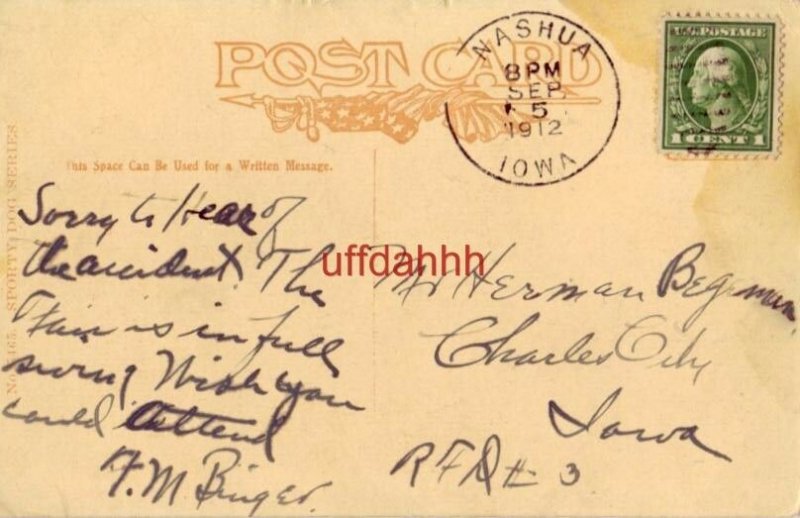 POST CARD
NASHUA
8 PM
SEP
5
1912
IOWA
U.S. POSTAGE
1 CENT 1
This Space Can Be Used for a Written Message.
SPORTY DOG SERIES
Sorry to Hear of
the accident. The
Fair is in full
swing Wish you
could Attend
F. M. Binger.
uffdahhh
Mr Herman Begeman
Charles City
Iowa
RFD # 3